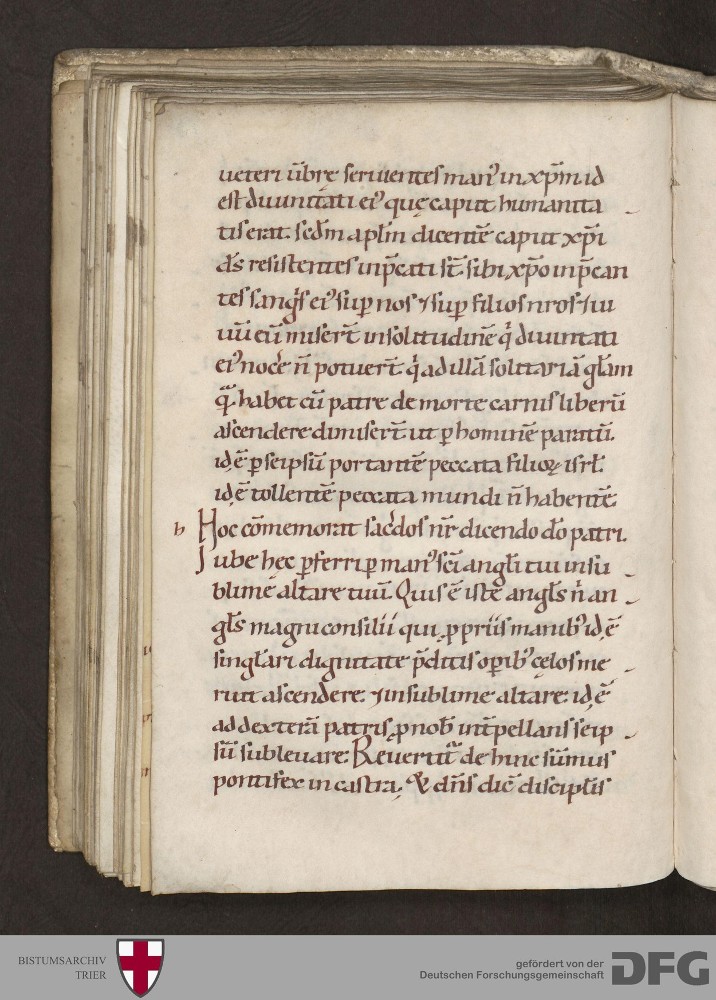 ueteri ūbrę seruientes man᾽ in xp̄m id
est diuinitati ei᾽ quę caput humanita
tis erat. scd̄m aplm̄ dicentē caput xp̄i
ds̄ resistentes inp̄cati st̄ sibi xp̄o inp̄can
tes sang̅s ei᾽ suꝑ nos ⁊ suꝑ filios nr̄os ⁊ ui
uū eū misert̄ in solitudinē q̊ diuinitati
ei᾽ nocer̄e n̄ potuert̄ q̊ ad illā solitariā gl̄am
q̄ habet cū patre de morte carnis liberū
ascendere dimisert̄ ut ꝑ hominē paratū.
id ē ꝑ seipsū portantē peccata filioꝝ isrl̄.
id ē tollentē peccata mundi n̄ habentē.
b Hoc cōmemorat sac̄dos nr̄ dicendo dō patri.
Iube hec ꝑferri ꝑ man᾽ sc̄i angl̄i tui in su
blime altare tuū. Quis ē iste angl̄s n̄ an
gl̄s magni consilii qui ꝓpriis manib᾽ id ē
singl̄ari dignitate p̄ditis oꝑib᾽ cęlos me
ruit ascendere. ⁊ in sublime altare. id ē
ad dexterā patris ꝓ nob̄ int̄pellans seip
sū subleuare. Reuertit᷑ de hinc sūmus
pontifex in castra, qd̄ dn̄s dic̄ discipl̄is
BISTUMSARCHIV
TRIER
gefördert von der
Deutschen Forschungsgemeinschaft
DFG